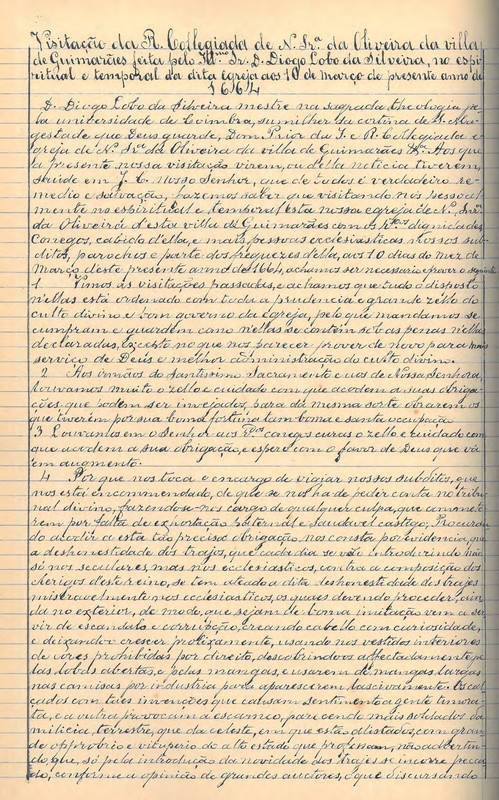 Visitação da R. Collegiada de N. Srª da Oliveira da villa
de Guimarães feita pelo Illmo Sr. D. Diogo Lobo da Silveira, no espi-
ritual e temporal da dita egreja aos 10 de Março do presente anno de
1664
D. Diogo Lobo da Silveira mestre na sagrada theologia pe-
la universidade de Coimbra, sumilher da cortina de S. Ma-
gestade que Deus guarde, Dom Prior da I. e R. Collegiada e
greja de N. Srª da Oliveira da villa de Guimarães &ª. Aos que
a presente nossa visitação virem, ou della noticia tiverem,
saude em J. C. Nosso Senhor, que de todos é verdadeiro re-
medio e salvação, fazemos saber que visitando nós pessoal-
mente no espiritual e temporal esta nossa egreja de N. Srª
da Oliveira d'esta villa de Guimarães com os Rdos dignidades,
Conegos, cabido della, e mais pessoas ecclesiasticas nossos sub-
ditos, parochos e parte dos freguezes della, aos 10 dias do mez de
Março deste presente anno de 1664, achamos ser necessario prover o seguinte
1 Vimos as visitações passadas, e achamos que tudo o disposto
n'ellas está ordenado com toda a prudencia e grande zello do
culto divino e bom governo da egreja, pelo que mandamos se
cumpram e guardem como n'ellas se contém sob as penas n'ellas
declaradas, excepto no que nos parecer prover de novo para mais
serviço de Deus e melhor administração do culto divino.
2 Aos irmãos do Santissimo Sacramento e aos de Nossa Senhora,
louvamos muito o zello e cuidado com que acodem a suas obriga-
ções que podem ser invejados, para da mesma sorte obrarem os
que tiverem por sua boma fortuna tam boma e santa occupação
3 Louvamos em o Senhor aos Rdos conegos curas o zello e cuidado com
que acodem a sua obrigação, e espero com o favor de Deus que vá
em augmento.
4 Por que nos toca o encargo de vigiar nossos subditos, que
nos está encommendado, de que se nos ha de pedir conta no tribu-
nal divino, fazendo-se nos cargo de qualquer culpa, que commette-
rem por falta de exhortação paternal e saudavel castigo; Procuran-
do acodir a esta tão precisa obrigação nos consta por evidencia, que
a deshonestidade dos trajos, que cada dia se vão introduzindo não
só nos seculares, mas nos ecclesiasticos, contra a composição dos
clerigos d'este reino, se tem ateado a dita deshonestidade dos trajes
miseravelmente nos ecclesiasticos, os quaes devendo proceder, ain-
da no exterior, de modo, que sejam de boma imitação vem a ser-
vir de escandalo e corrupção, creando cabello com curiosidade,
e deixando-o crescer prolixamente, usando nos vestidos interiores
de côres prohibidas por direito, descobrindo-os affectadamente pe-
las lobas abertas, e pelas mangas, e usarem de mangas largas
nas camisas por industria para apparescerem lascivamente
cados com taes invenções que causam sentimento a gente timora-
ta, e a outra provocam a escarneo, parecendo mais soldados da
milicia terrestre, que da celeste, em que estão alistados, com gran-
de opprobrio e vituperio do alto estado que professam, não advertin-
do, que, só pela introducção da novidade dos trajes se incorre pecca-
do, conforme a opinião de grandes auctores, o que discursando